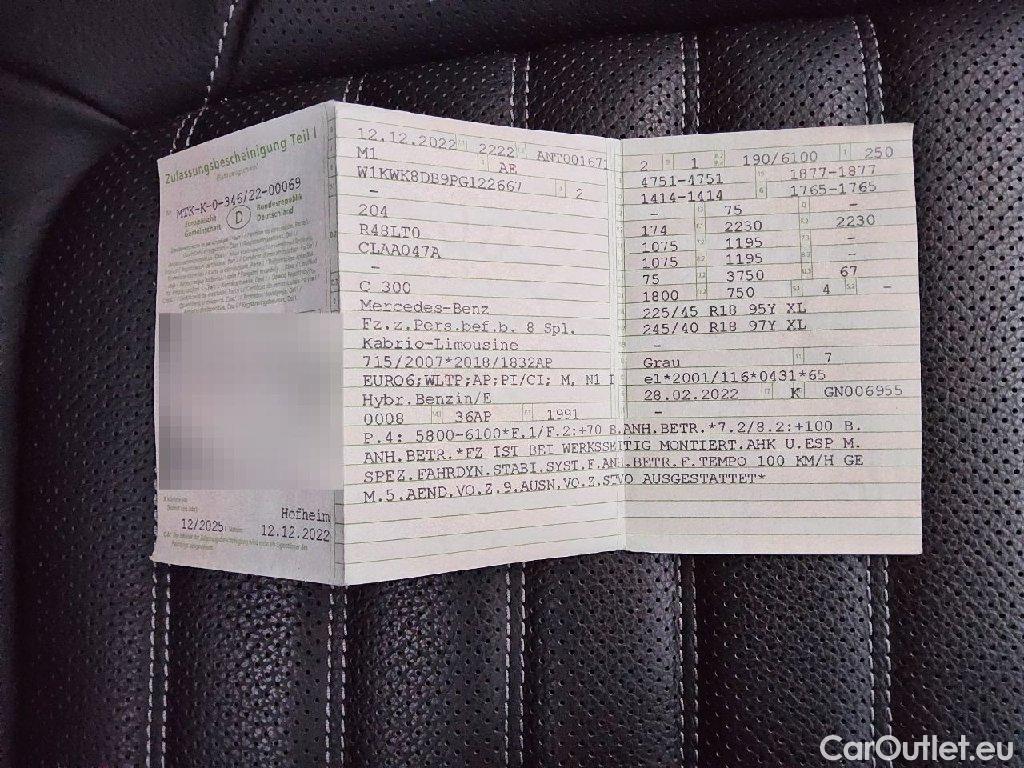 Zulassungsbescheinigung Teil I
MTK-K-0-346/22-00069
Europäische Gemeinschaft
D
Bundesrepublik Deutschland
Hofheim
12/2025
12.12.2022
12.12.2022 2222 ANT001671
M1 AE
W1KWK8DB9PG122667 2
-
204
R48LT0
CLAA047A
-
C 300
Mercedes-Benz
Fz.z.Pers.bef.b. 8 Spl.
Kabrio-Limousine
715/2007*2018/1832AP
EURO6;WLTP;AP;PI/CI; M, N1 I
Hybr.Benzin/E
0008 36AP 1991
2 1 190/6100 250
4751-4751 1877-1877
1414-1414 1765-1765
- 75 -
174 2230 2230
1075 1195 -
1075 1195 -
75 3750 67
1800 750 4 -
225/45 R18 95Y XL
245/40 R18 97Y XL
-
Grau 7
e1*2001/116*0431*65
28.02.2022 K GN006955
-
P.4: 5800-6100*F.1/F.2:+70 B.ANH.BETR.*7.2/8.2:+100 B.
ANH.BETR.*FZ IST BEI WERKSSEITIG MONTIERT.AHK U.ESP M.
SPEZ.FAHRDYN.STABI.SYST.F.ANH.BETR.F.TEMPO 100 KM/H GE
M.5.AEND.VO.Z.9.AUSN.VO.Z.STVO AUSGESTATTET*
CarOutlet.eu